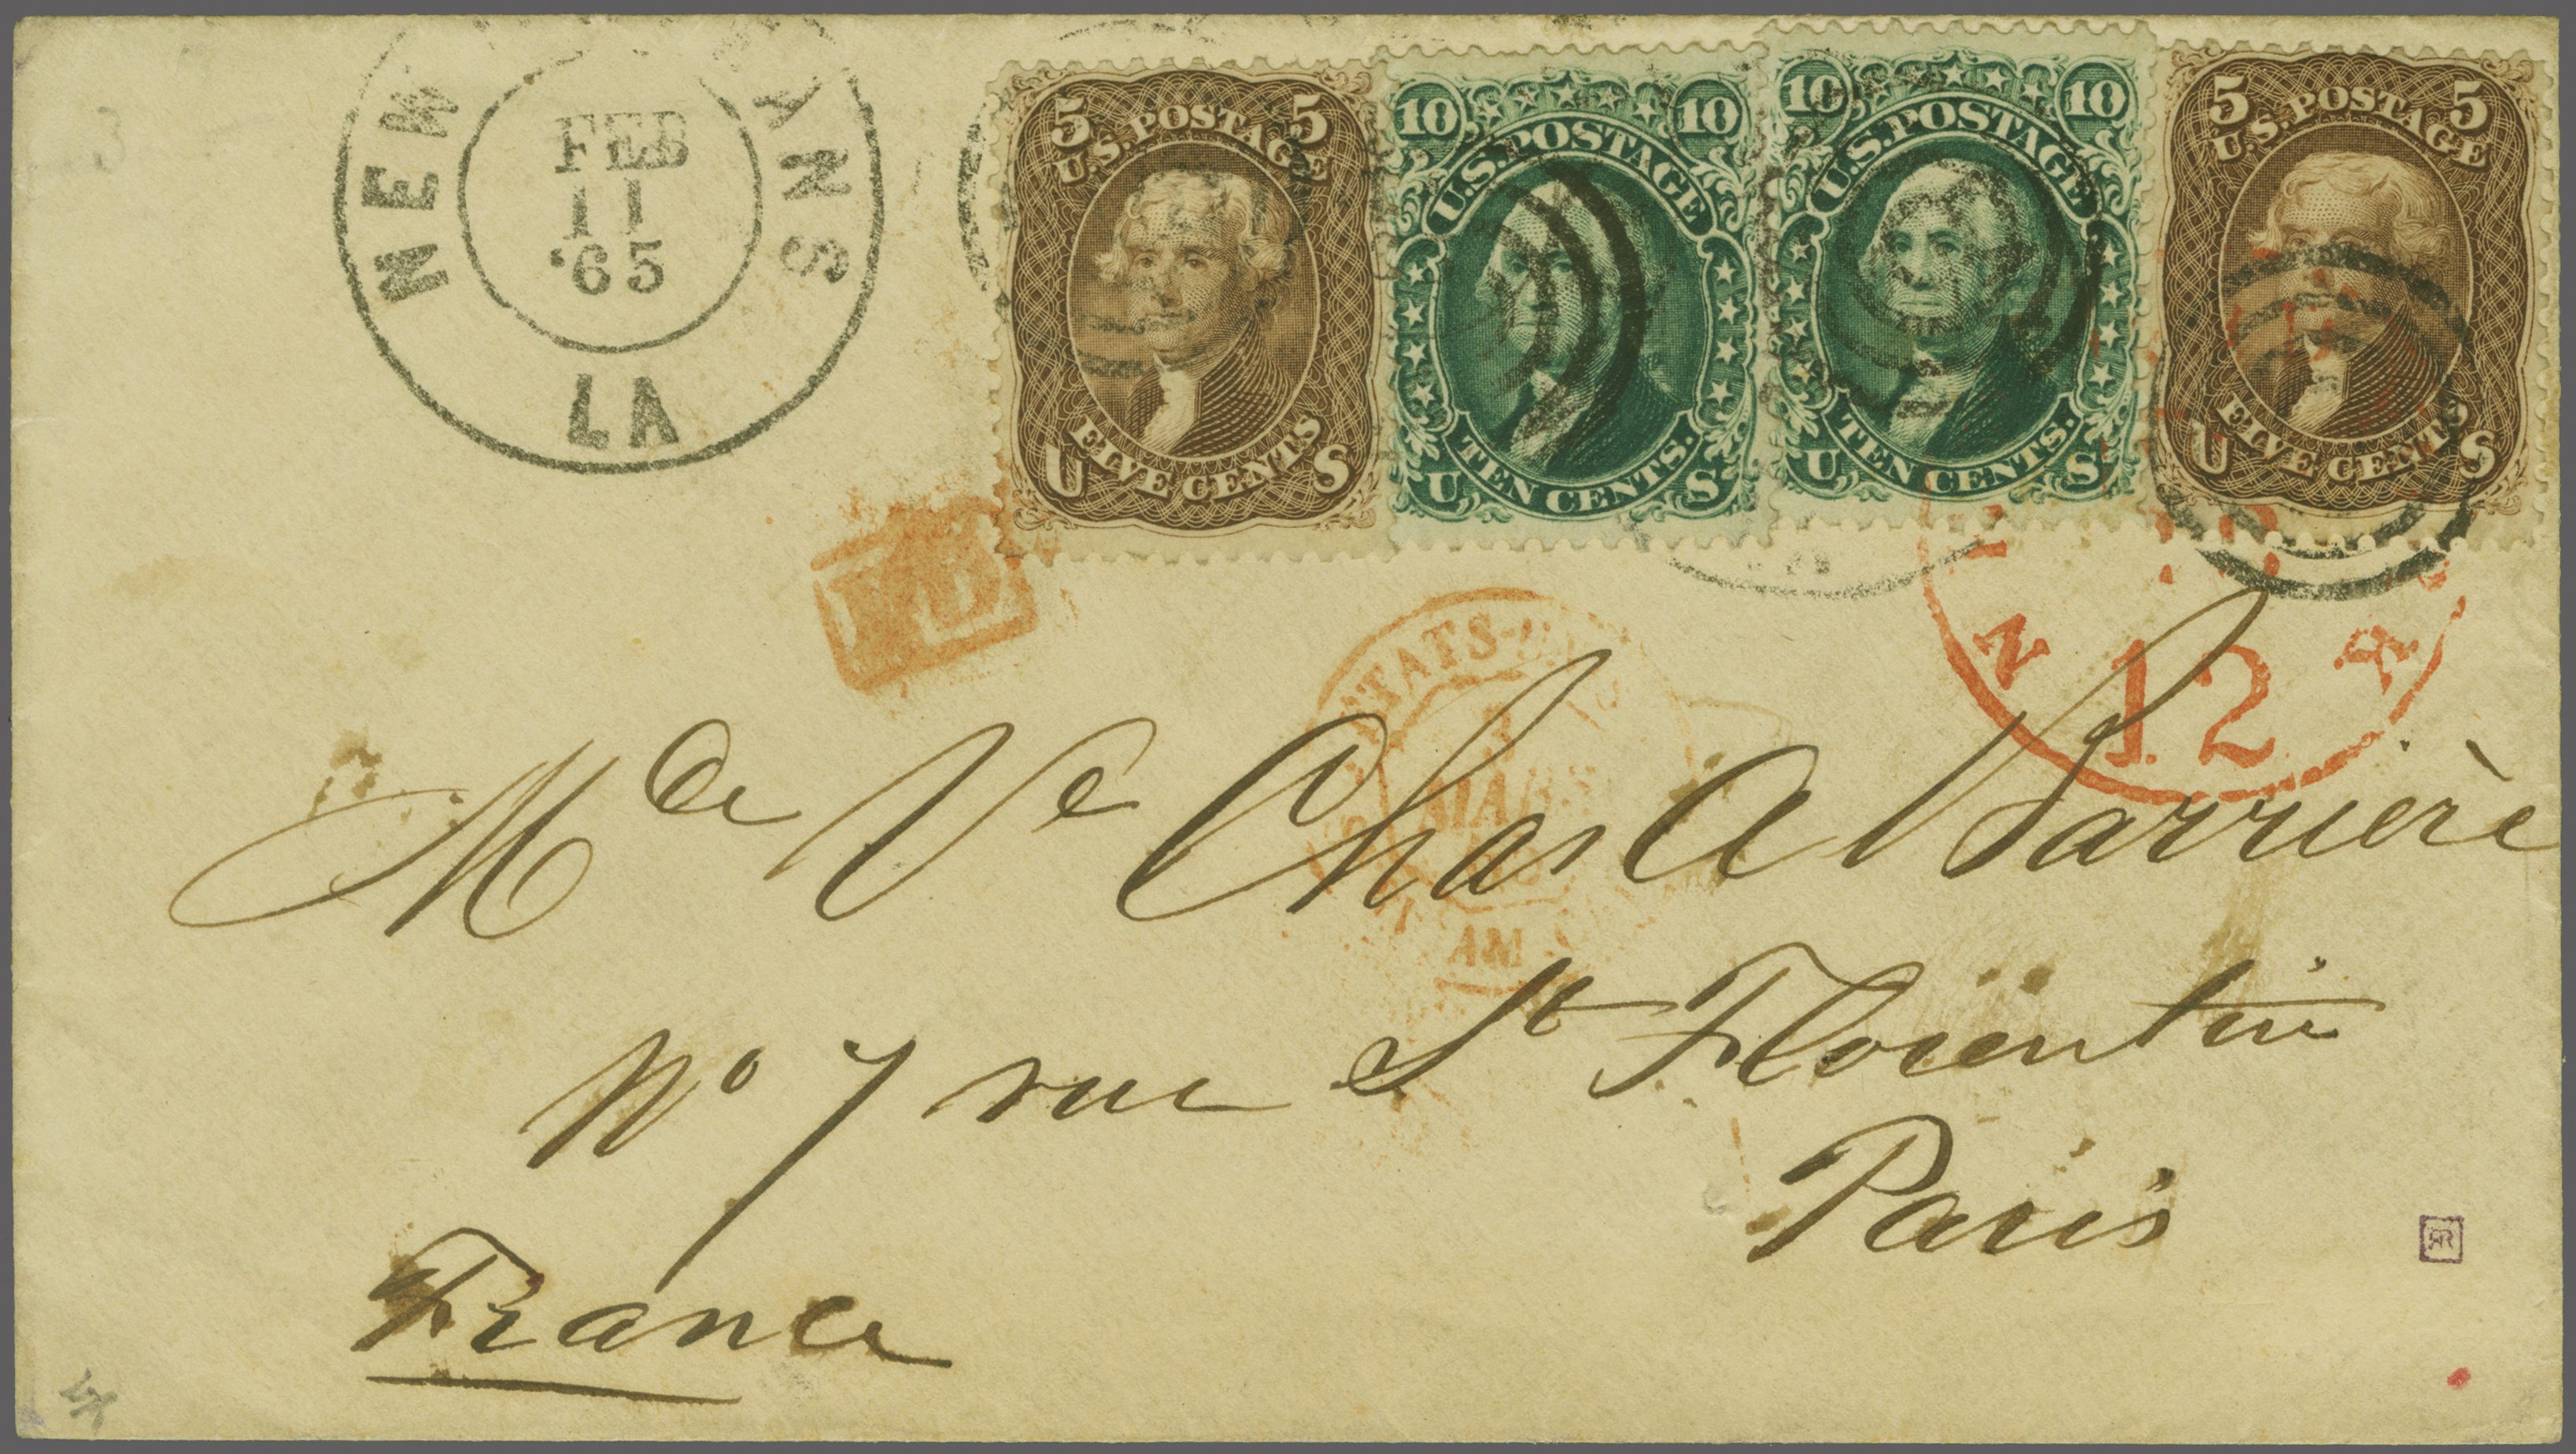 NEW
ANS
FEB
11
'65
LA
5 5
U.S. POSTAGE
FIVE CENTS
U S
10 10
U.S. POSTAGE
TEN CENTS.
U. S.
10 10
U.S. POSTAGE
TEN CENTS.
U. S.
5 5
U.S. POSTAGE
FIVE CENTS
U S
PD
ETATS-
AM
12
Mde Ve Chas A Barrière
No 7 rue St Florentin
Paris
France